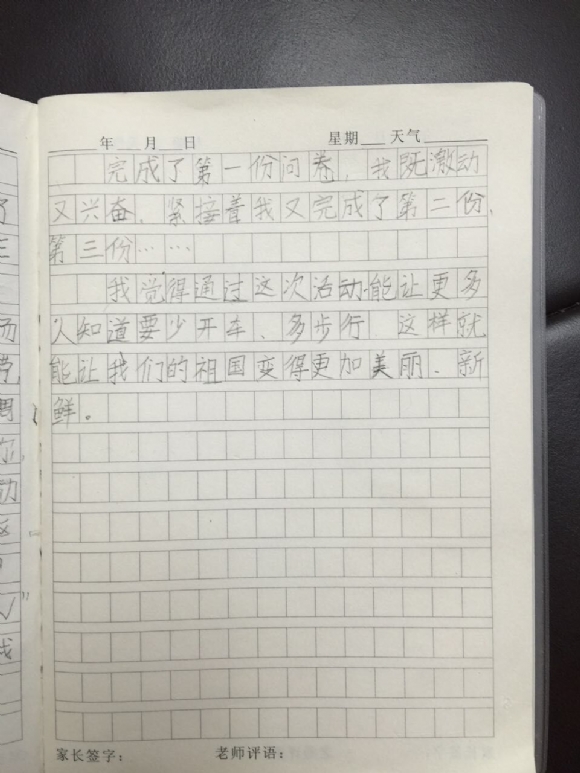 年 月 日 星期 天气
完成了第一份问卷，我既激动
又兴奋、紧接着我又完成了第二份、
第三份……
我觉得通过这次活动能让更多
人知道要少开车、多步行 这样就
能让我们的祖国变得更加美丽、新
鲜。
家长签字： 老师评语：